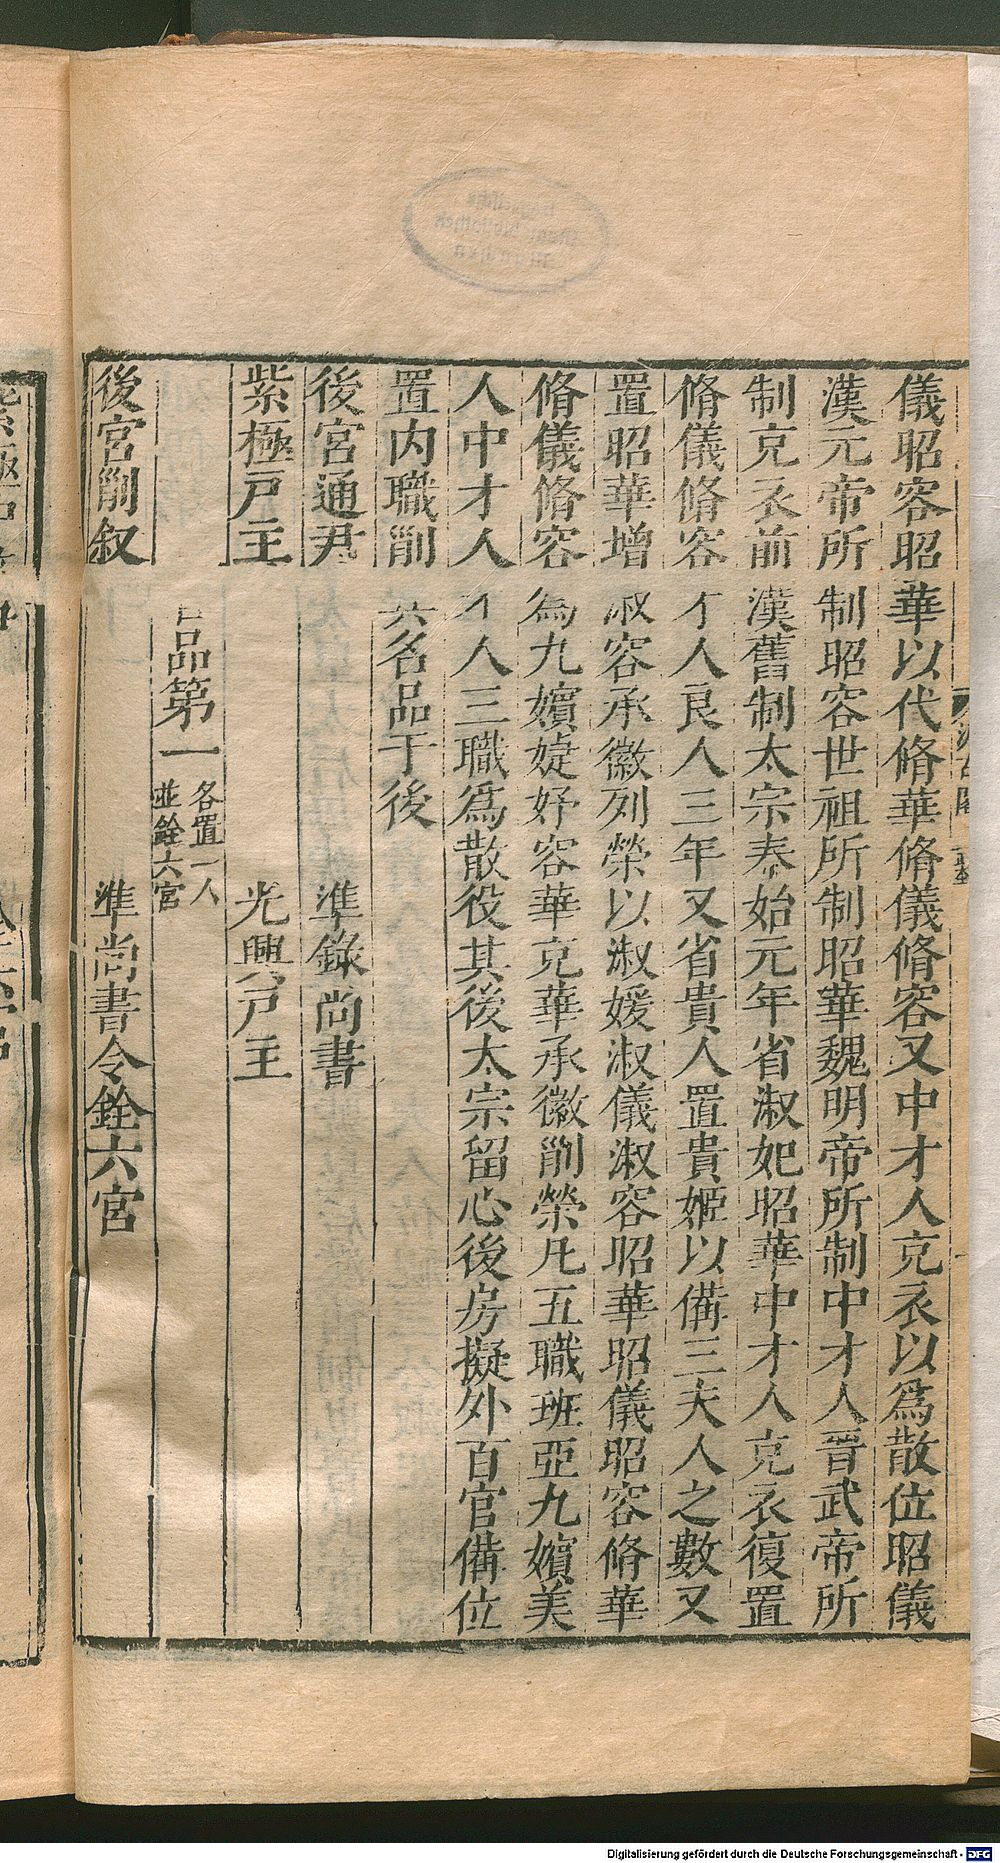 儀昭容昭華以代脩華脩儀脩容又中才人充衣以爲散位昭儀
漢元帝所制昭容世祖所制昭華魏明帝所制中才人晉武帝所
制充衣前漢舊制太宗泰始元年省淑妃昭華中才人充衣復置
脩儀脩容才人良人三年又省貴人置貴姬以備三夫人之數又
置昭華增淑容承徽列榮以淑媛淑儀淑容昭華昭儀昭容脩華
脩儀脩容爲九嬪婕妤容華充華承徽列榮凡五職班亞九嬪美
人中才人才人三職爲散役其後太宗留心後房擬外百官備位
置內職列其名品于後
後宮通尹 準錄尚書
紫極戶主 光興戶主
官品第一 各置一人
並銓六宮
後宮列叙 準尚書令銓六宮
Digitalisierung gefördert durch die Deutsche Forschungsgemeinschaft - DFG